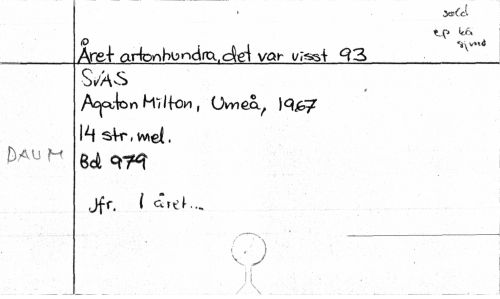 Året artonhundra, det var visst 93
SvAS
Agaton Milton, Umeå, 1967
14 str. mel.
DAUM
Bd 979
Jfr. I året...